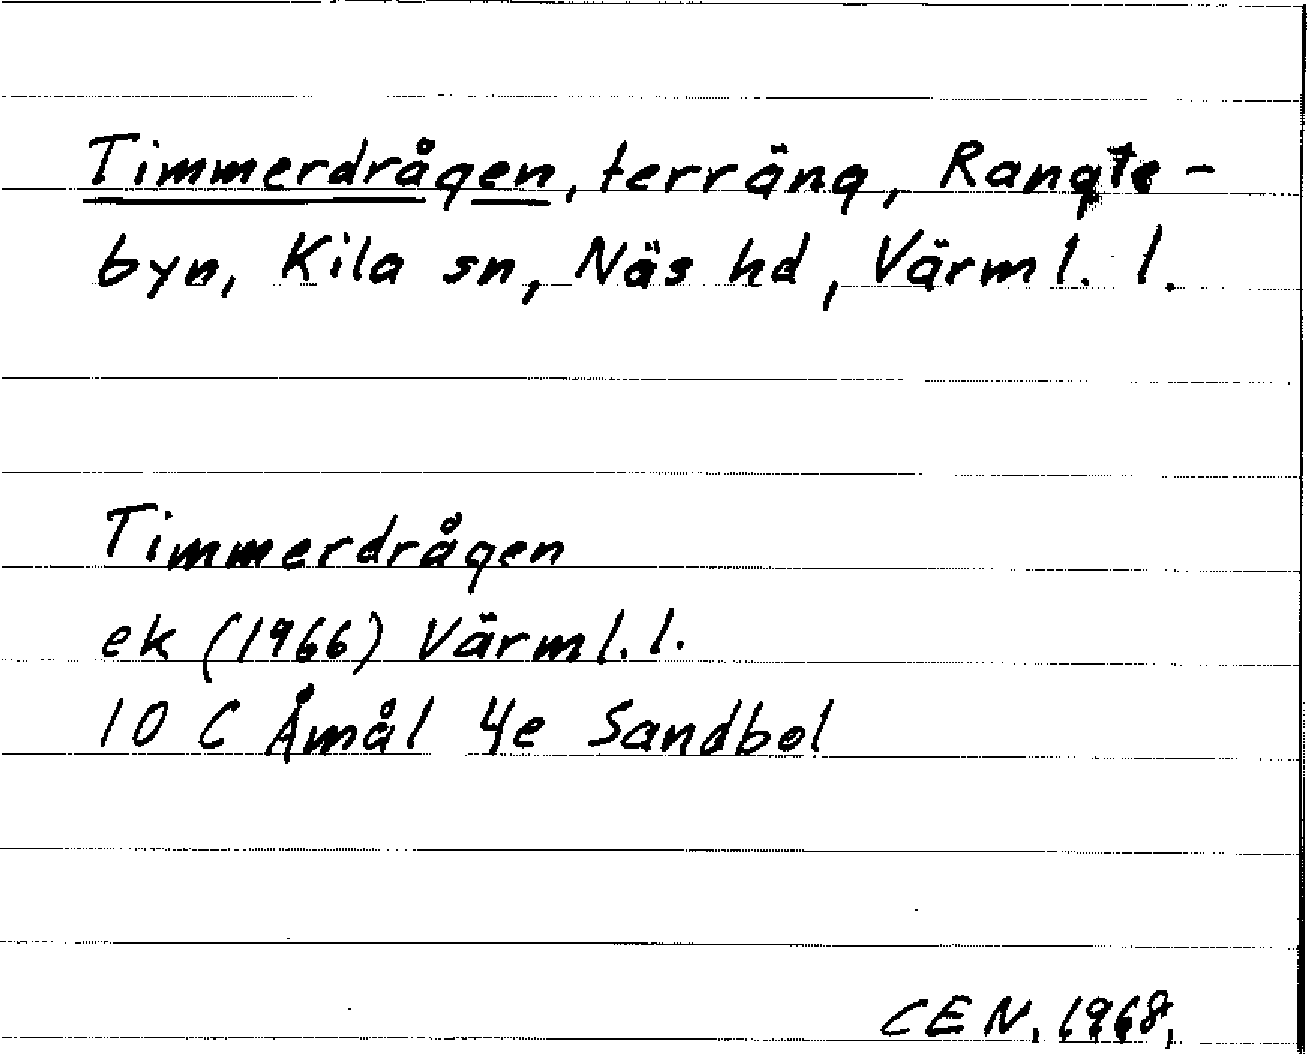 Timmerdrågen, terräng, Rangte-
byn, Kila sn, Näs hd, Värml. l.
Timmerdrågen
ek (1966) Värml. l.
10 C Åmål 4e Sandbol
CEN, 1968,